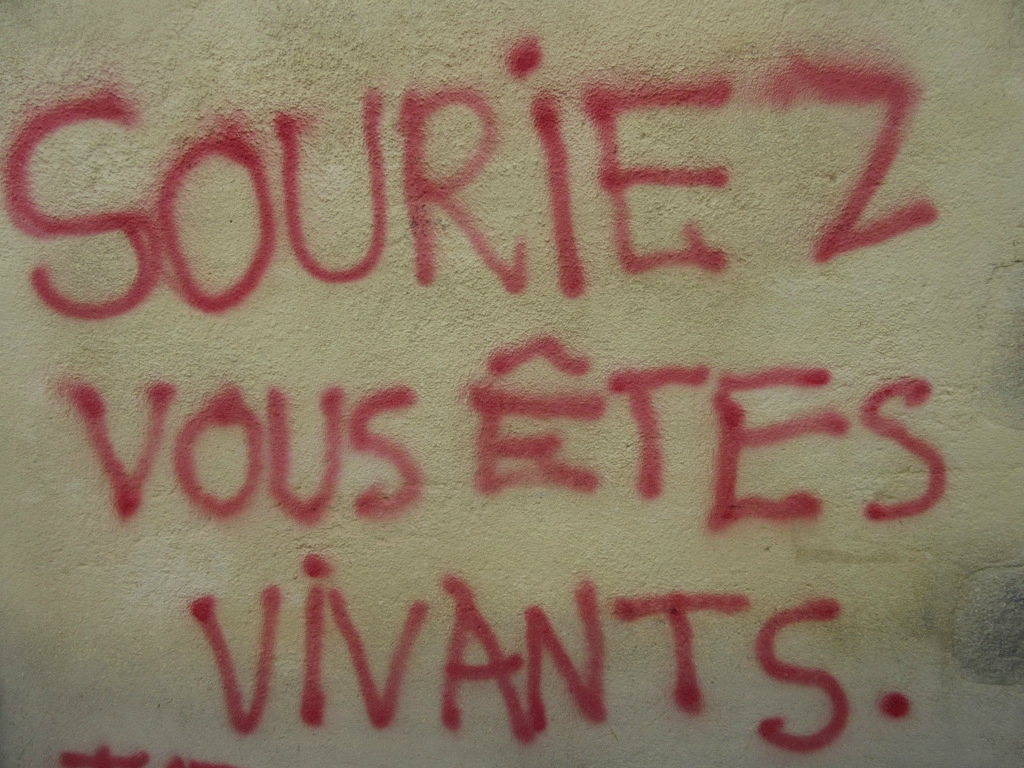 SOURiEZ
VOUS ÊTES
ViVANTS.